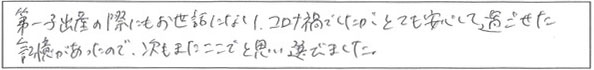 第一子出産の際にもお世話になり、コロナ禍でしたが、とても安心して過ごせた
記憶があったので、次もまたここでと思い選びました。